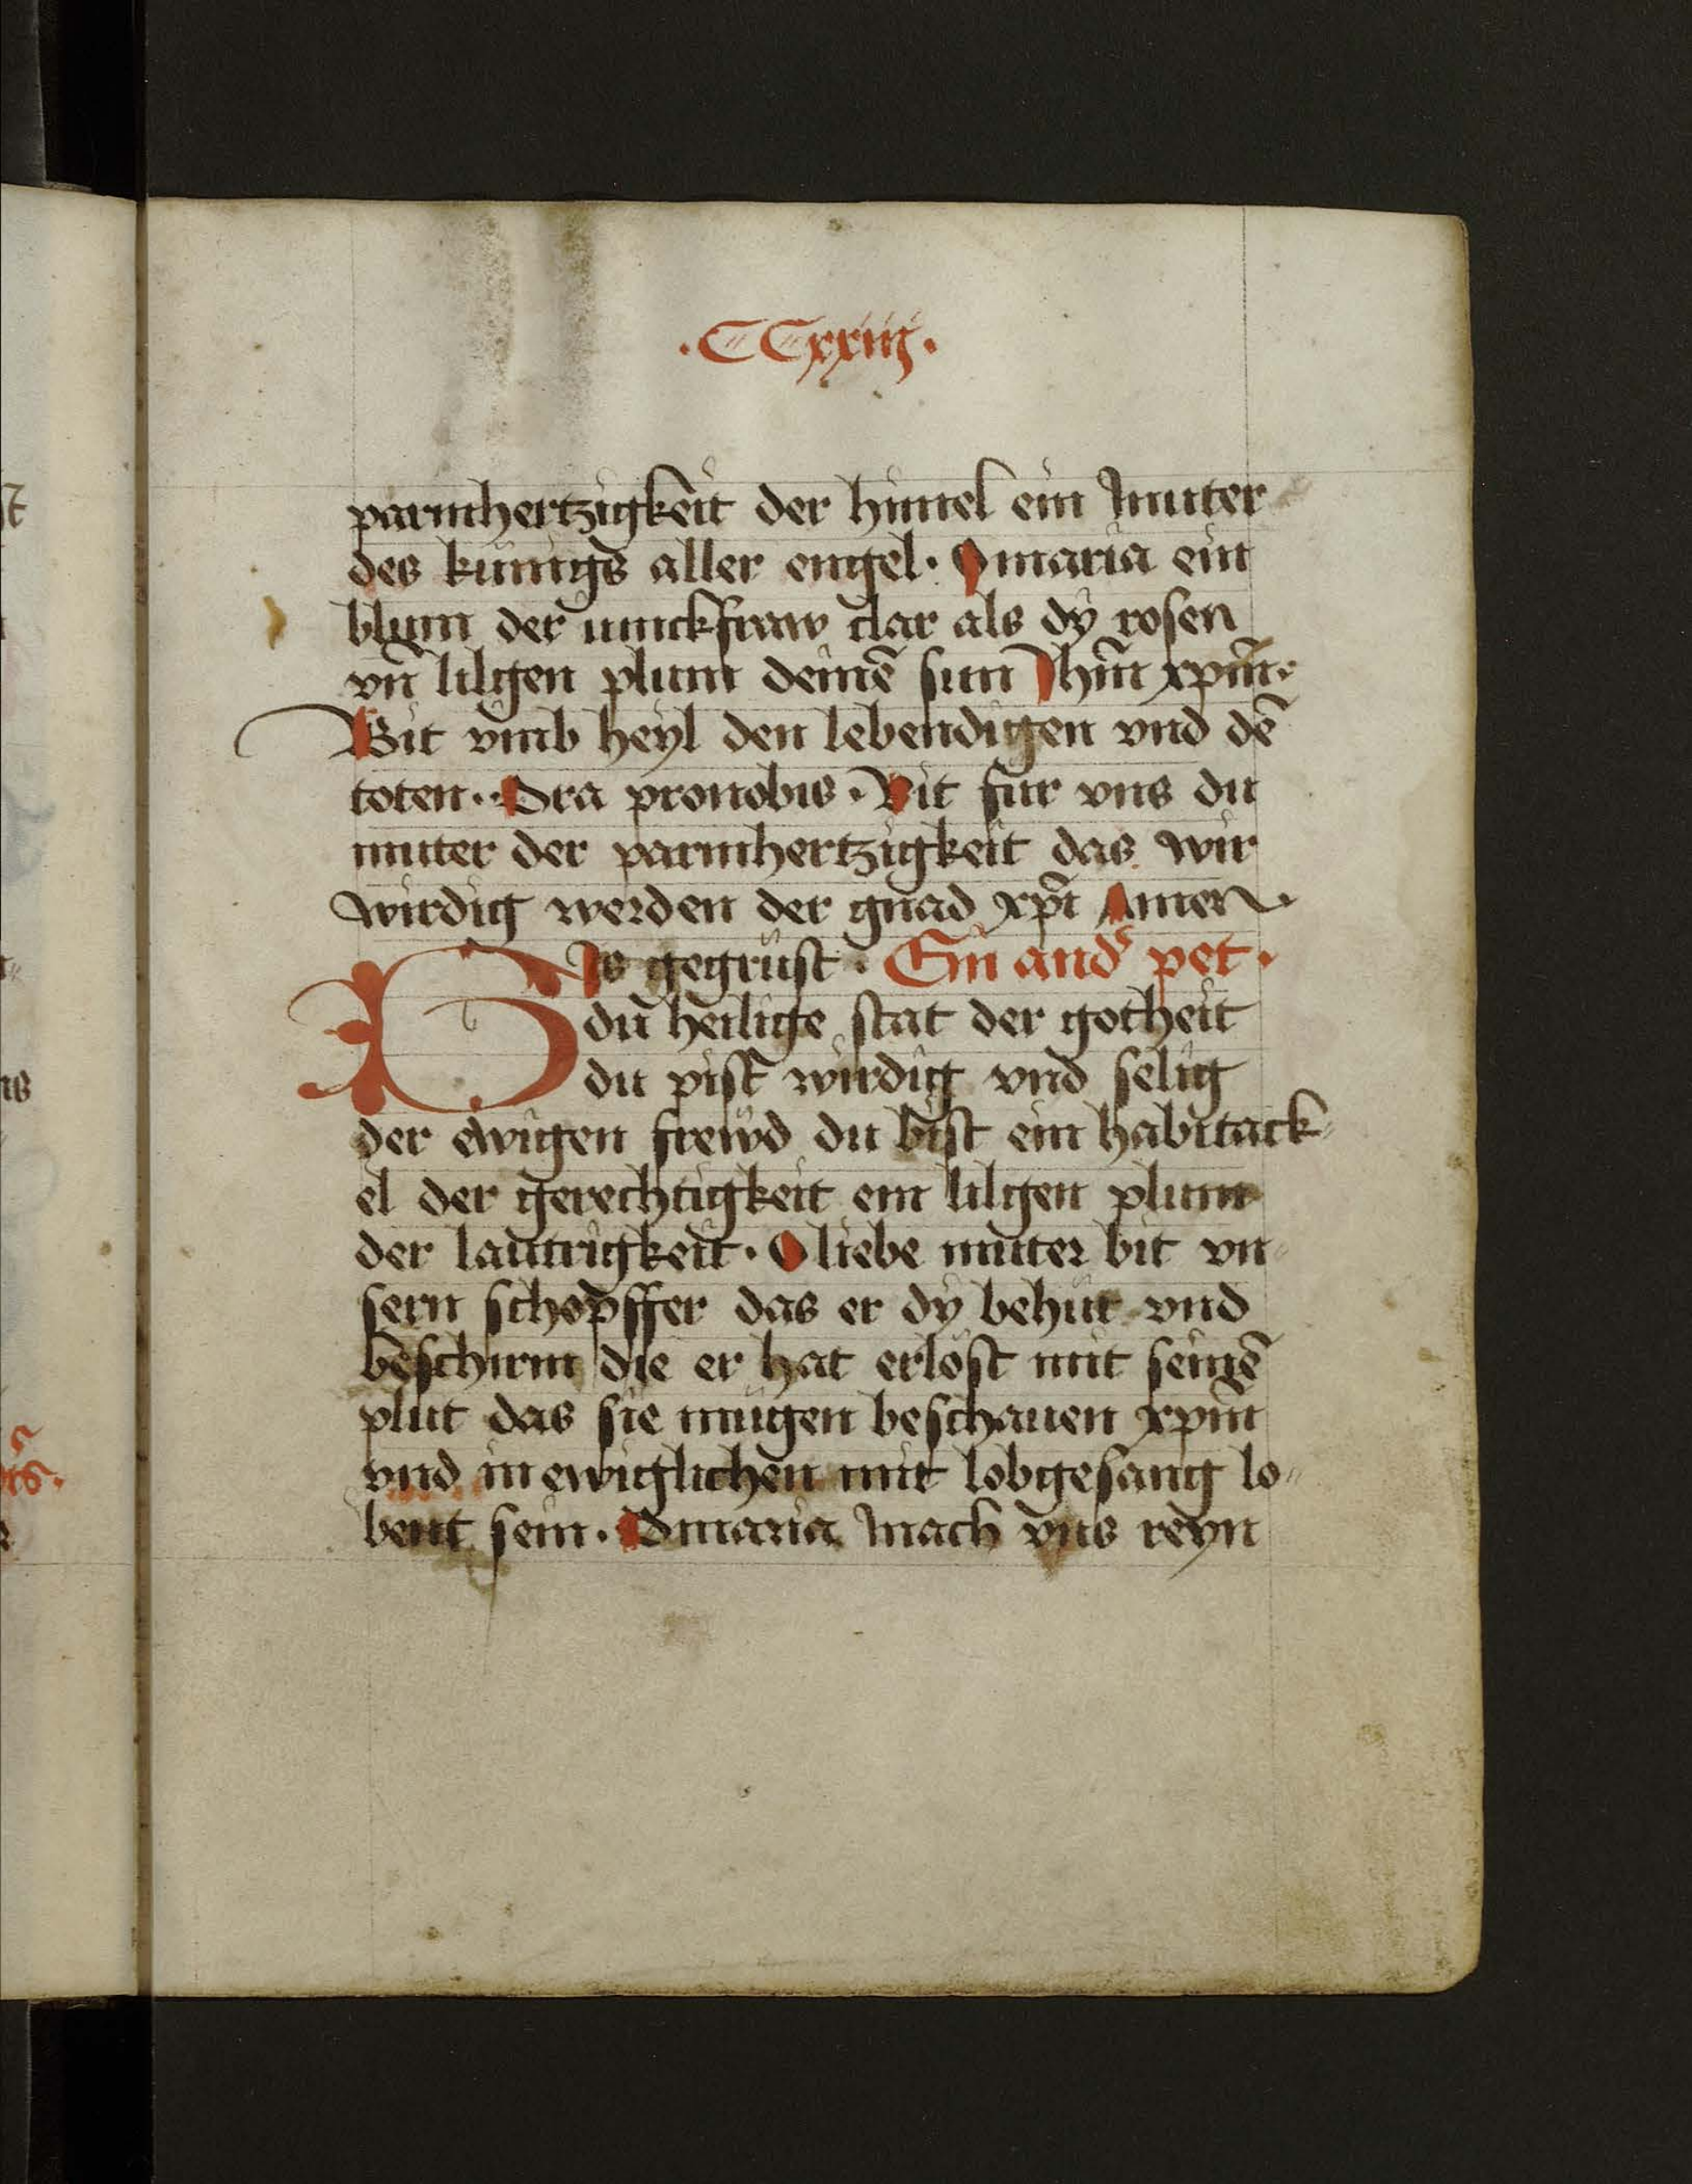 ·CCxxiij·
parmhertzigkeit der himel ein muter
des künigs aller engel· O maria ein
blum der iunckfraw clar als dy rosen
vn̄ lilgen plum deinē sun Jhm̄ xpm̄·
Bit vmb heyl den lebendigen vnd dē
toten· Ora pronobis· Bit für vns du
muter der parmhertzigkeit das wir
wirdig werden der gnad xpi Amen·
BJs gegrüst· Ein and͛ pet·
du heilige stat der gotheit
du pist wirdig vnd selig
der ewigen frewd du bist ein habitack-
el der gerechtigkeit ein lilgen plum
der lautrigkeit· O liebe muter bit vn-
sern schopffer das er dy behüt vnd
beschirm die er hat erlöst mit seinē
plut das sie mügen beschauen xpm̄
vnd in ewiglichen mit lobgesang lo-
bent sein· O maria mach vns reyn